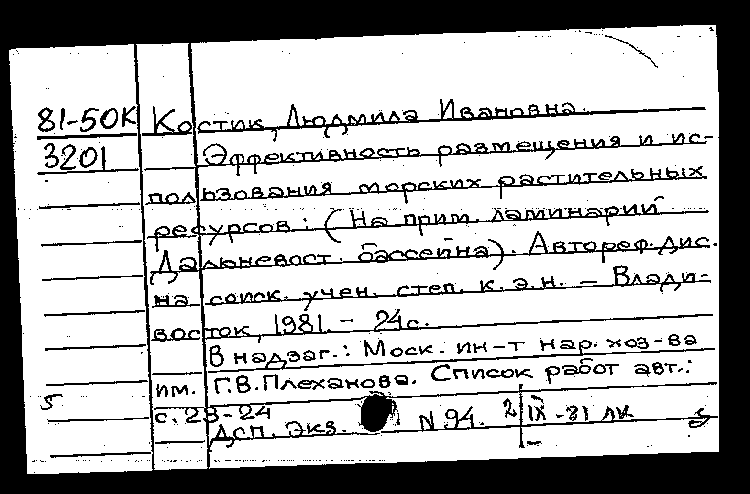 81-50К Костик, Людмила Ивановна.
3201 Эффективность размещения и ис-
пользования морских растительных
ресурсов: (На прим. ламинарий
Дальневост. бассейна). Автореф. дис.
на соиск. учен. степ. к. э. н. – Влади-
восток, 1981. – 24с.
В надзаг.: Моск. ин-т нар. хоз-ва
им. Г.В. Плеханова. Список работ авт.:
с. 23-24
Дсп. Экз. N 94. 2/IX-81 ЛК
5